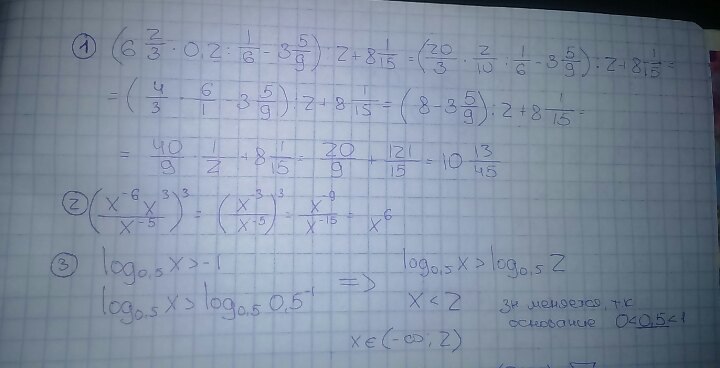 ① (6 2/3 · 0,2 : 1/6 - 3 5/9) : 2 + 8 1/15 = (20/3 · 2/10 : 1/6 - 3 5/9) : 2 + 8 1/15 =
= (4/3 · 6/1 - 3 5/9) : 2 + 8 1/15 = (8 - 3 5/9) : 2 + 8 1/15 =
= 40/9 · 1/2 + 8 1/15 = 20/9 + 121/15 = 10 13/45
② (x⁻⁶x³/x⁻⁵)³ = (x⁻³/x⁻⁵)³ = x⁻⁹/x⁻¹⁵ = x⁶
③ log₀,₅ x > -1 => log₀,₅ x > log₀,₅ 2
log₀,₅ x > log₀,₅ 0,5⁻¹ x < 2 зн меняется, т.к
основание 0<0,5<1
x∈(-∞; 2)